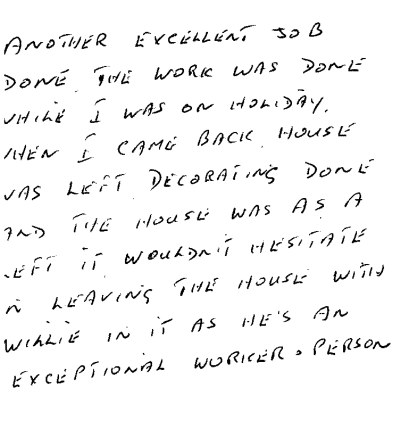 ANOTHER EXCELLENT JOB
DONE. THE WORK WAS DONE
WHILE I WAS ON HOLIDAY.
WHEN I CAME BACK HOUSE
WAS LEFT DECORATING DONE
AND THE HOUSE WAS AS A
LEFT IT WOULDN'T HESITATE
IN LEAVING THE HOUSE WITH
WILLIE IN IT AS HE'S AN
EXCEPTIONAL WORKER. PERSON